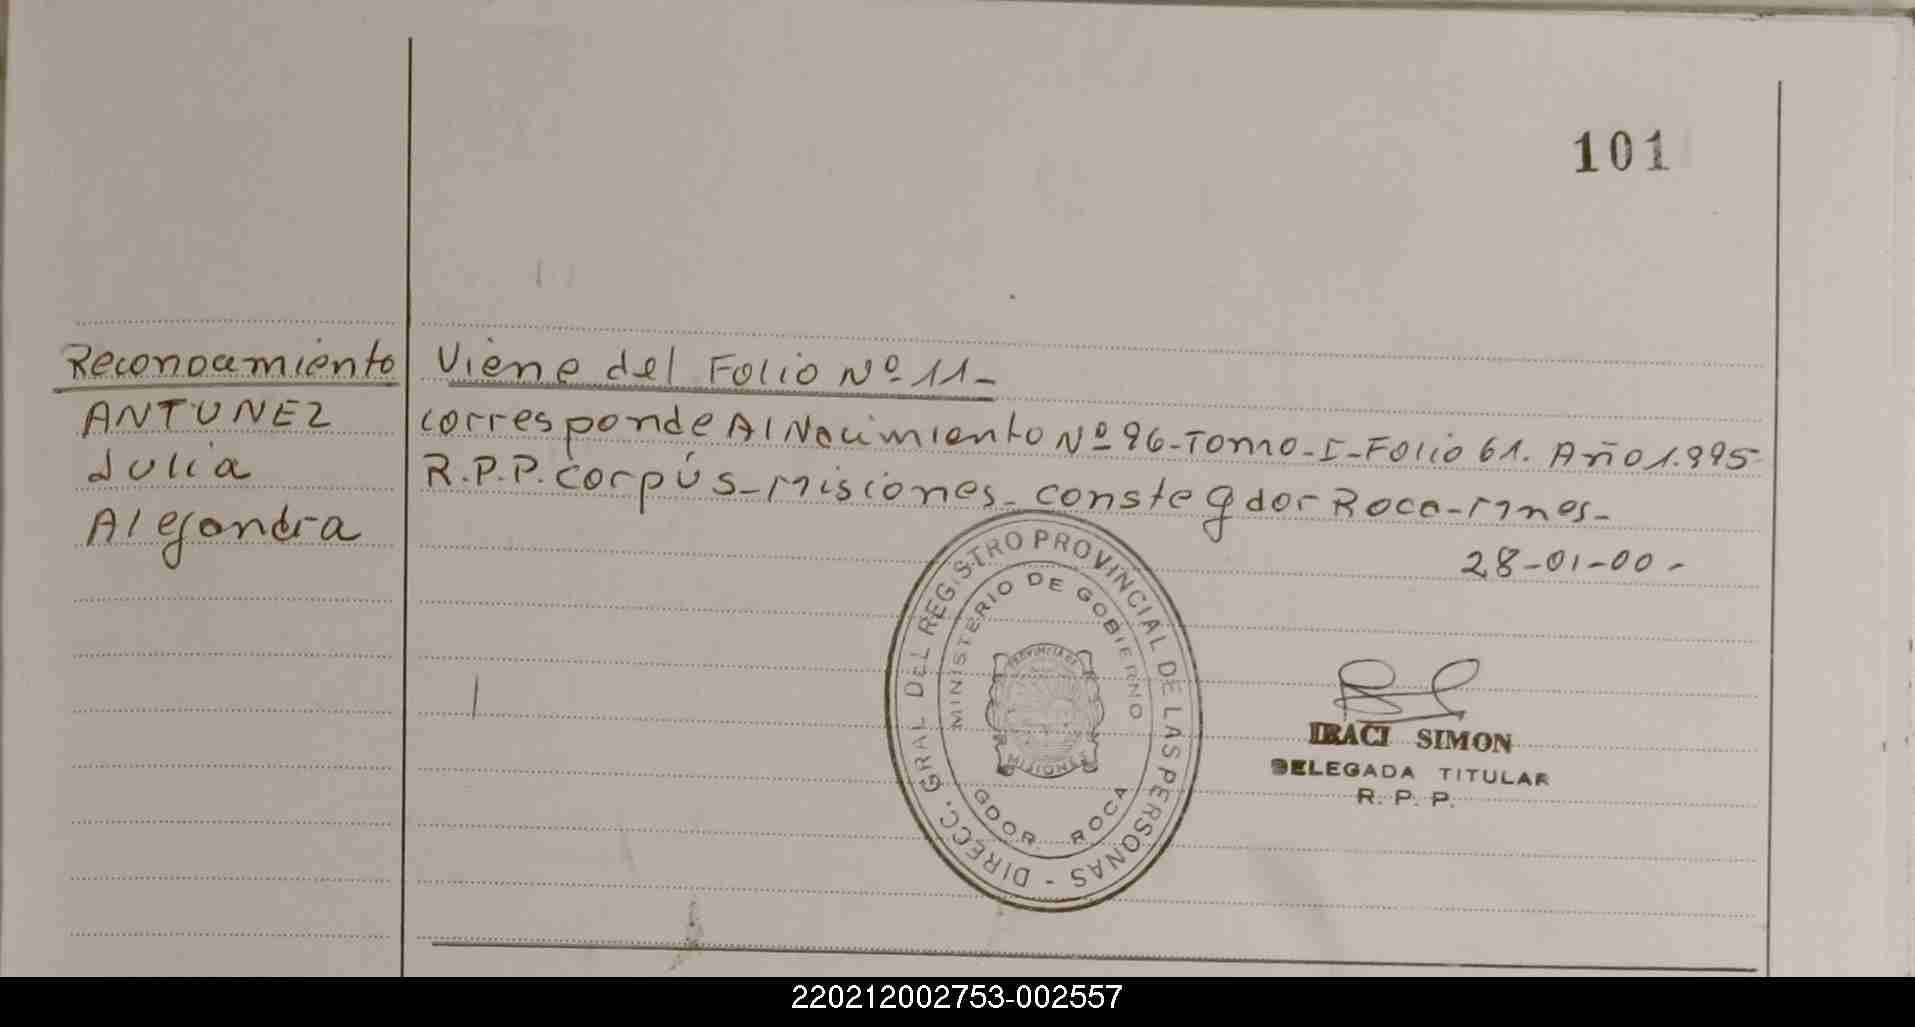 101
Reconocimiento
ANTUNEZ
Julia
Alejandra
Viene del Folio Nº 11-
corresponde Al Nacimiento Nº 96-Tomo-I-Folio 61. Año 1.995-
R.P.P. Corpús-Misiones- conste gdor Roca-Mnes-
28-01-00-
DIRECC. GRAL DEL REGISTRO PROVINCIAL DE LAS PERSONAS -
MINISTERIO DE GOBIERNO
PROVINCIA DE
MISIONES
GDOR. ROCA
IRACI SIMON
DELEGADA TITULAR
R. P. P.
220212002753-002557